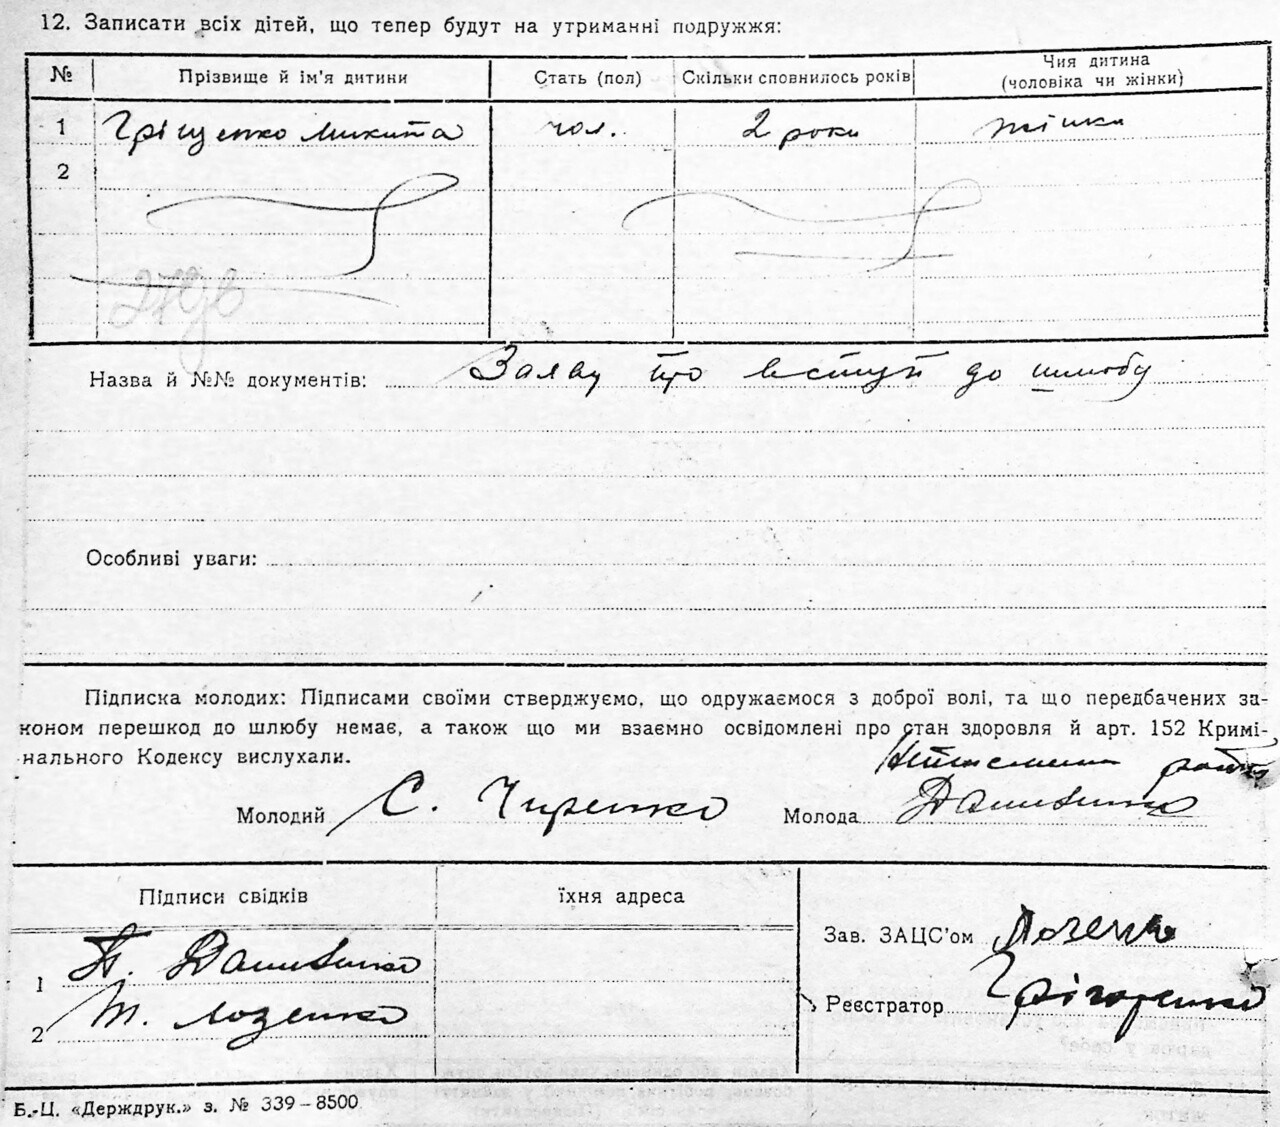 12. Записати всіх дітей, що тепер будут на утриманні подружжя:
№ Прізвище й ім'я дитини Стать (пол) Скільки сповнилось років Чия дитина
(чоловіка чи жінки)
1 Гріщенко Микита чол. 2 роки жінки
2
Назва й №№ документів: Заяву про вступ до шлюбу
Особливі уваги:
Підписка молодих: Підписами своїми стверджуємо, що одружаємося з доброї волі, та що передбачених за-
коном перешкод до шлюбу немає, а також що ми взаємно освідомлені про стан здоровля й арт. 152 Кримі-
нального Кодексу вислухали.
Молодий С. Чиренко Молода
Підписи свідків їхня адреса
Зав. ЗАЦС'ом Лозенко
1
Реєстратор Грігоренко
2 Т. Лозенко
Б.-Ц. «Держдрук.» з. № 339-8500